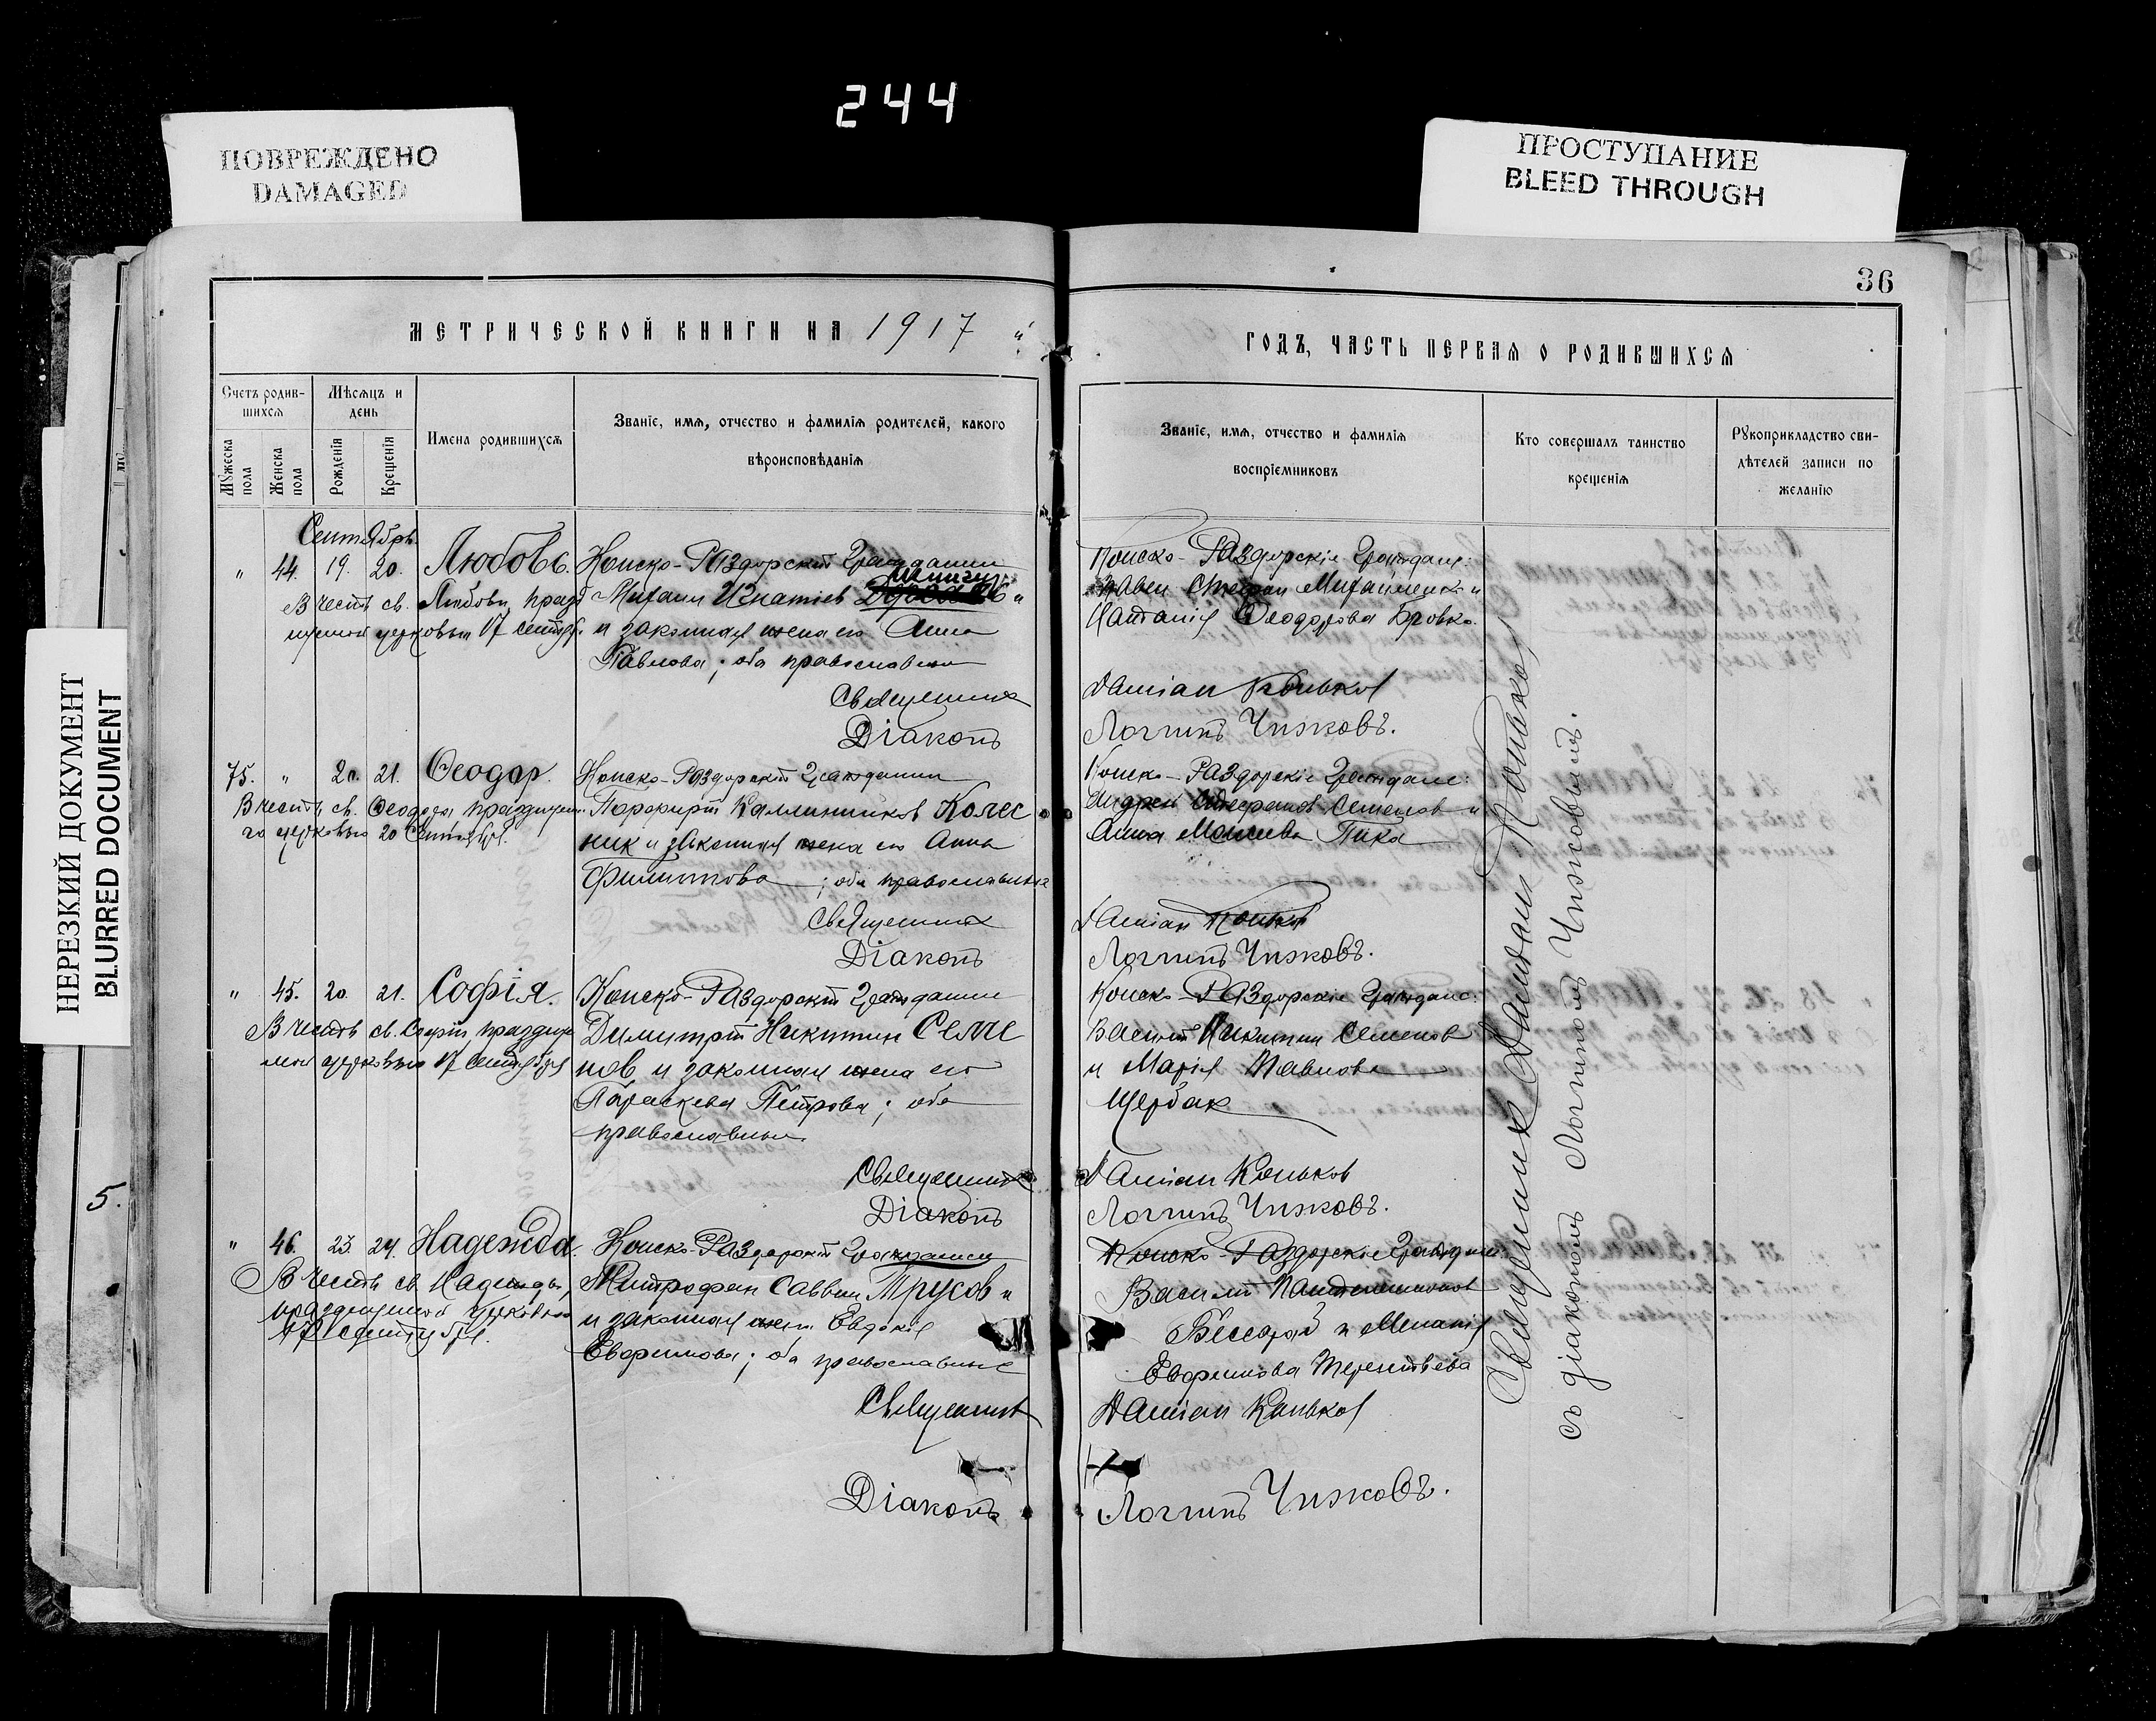 244
ПОВРЕЖДЕНО
DAMAGED
ПРОСТУПАНИЕ
BLEED THROUGH
НЕРЕЗКИЙ ДОКУМЕНТ
BLURRED DOCUMENT
5.
36
МЕТРИЧЕСКОЙ КНИГИ НА 1917 й
ГОДЪ, ЧАСТЬ ПЕРВАЯ О РОДИВШИХСЯ
Счетъ родив-
шихся
Мужеска пола
Женска пола
Мѣсяцъ и
день
Рожденія
Крещенія
Имена родившихся
Званіе, имя, отчество и фамилія родителей, какого
вѣроисповѣданія
Званіе, имя, отчество и фамилія
воспріемниковъ
Кто совершалъ таинство
крещенія
Рукоприкладство сви-
дѣтелей записи по
желанію
Сентябрь.
" 44. 19. 20. Любовь.
В честь св. Любови, празд
церковью 17 сентяб.
Конско-Раздорскій Гражданин
Михаил Игнатіев
и законная жена его Анна
Павлова; оба православны
Священник
Діаконъ
Конско-Раздорскіе Граждане:
Стефан и
Наталія Ѳеодорова Бровко.
Даміан Коньков
Логгинъ Чижковъ.
75. " 20. 21. Ѳеодор.
В честь св. Ѳеодора празднуем.
го церковью 20 Сентября.
Конско-Раздорскій Гражданин
Порфирій Каллиников Колес
ник и законная жена его Анна
Филиппова; оба православные
Священник
Діаконъ
Конско-Раздорскіе Граждане:
Андрей Семенов и
Анна Пика
Даміан Коньков
Логгинъ Чижковъ.
" 45. 20. 21. Софія.
В честь св. Софіи, праздну
мой церковью 17 Сентября
Конско-Раздорскій Гражданин
Димитрій Никитин Семе
нов и законная жена его
Параскева Петрова; оба
православны.
Священник
Діаконъ
Конско-Раздорскіе Граждане:
Василій Никитин Семенов
и Марія Павлова
Щербак
Даміан Коньков
Логгинъ Чижковъ.
" 46. 23. 24. Надежда.
В честь св. Надежды,
празднуемой церковью
17 Сентября.
Конско-Раздорскій Гражданин
Митрофан Саввин Трусов и
и законная жена Евдокія
Евфимова; оба православные
Священник
Діаконъ
Конско-Раздорскіе Граждане:
Василій Пантелеимонов
Бессараб и Меланія
Евфимова Терентьева
Даміан Коньков
Логгинъ Чижковъ.
Священник Даміан Коньков
съ діакономъ Логгиномъ Чижковымъ.